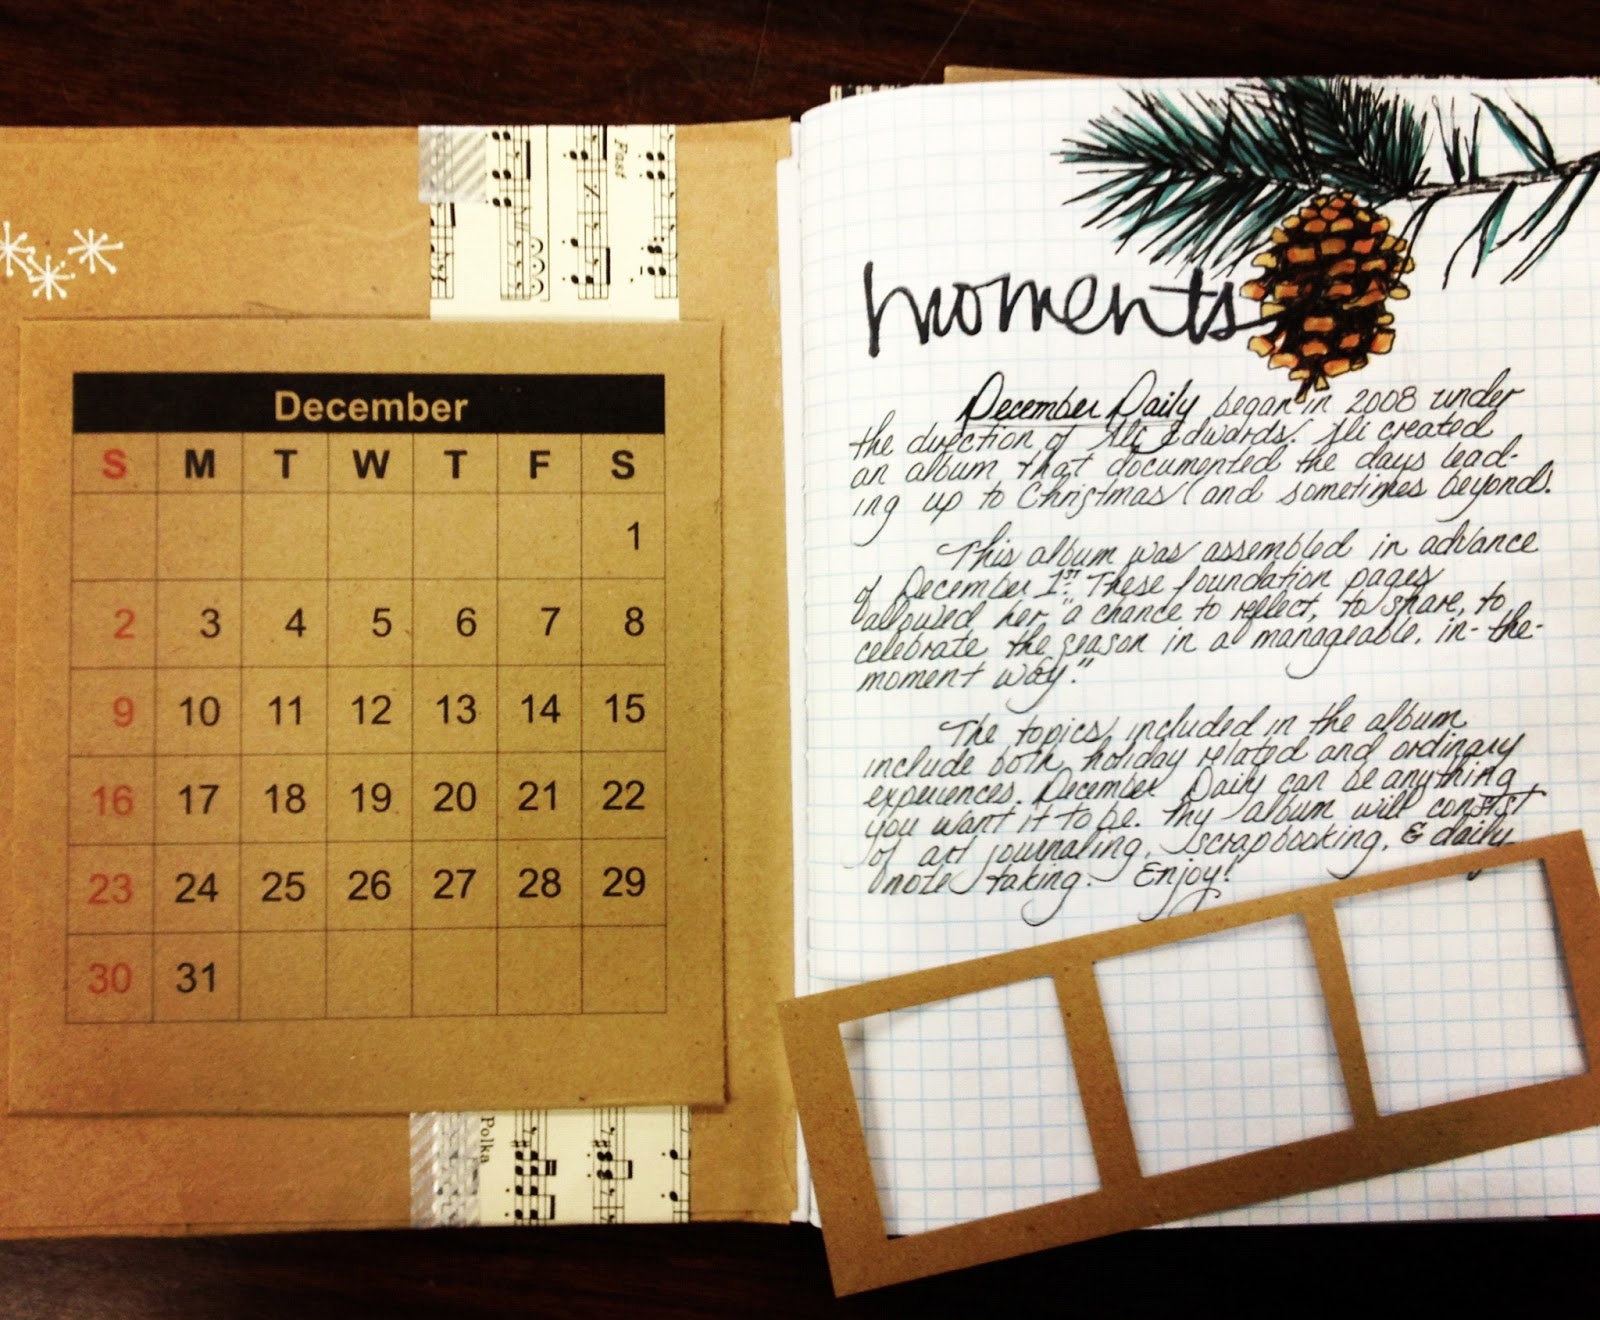 Fast
December
S M T W T F S
1
2 3 4 5 6 7 8
9 10 11 12 13 14 15
16 17 18 19 20 21 22
23 24 25 26 27 28 29
30 31
Polka
moments
December Daily began in 2008 under
the direction of Ali Edwards. Ali created
an album that documented the days lead-
ing up to Christmas (and sometimes beyond).
This album was assembled in advance
of December 1st. These foundation pages
allowed her "a chance to reflect, to share, to
celebrate the season in a manageable, in-the-
moment way."
The topics included in the album
include both holiday related and ordinary
experiences. December Daily can be anything
you want it to be. My album will consist
of art journaling, scrapbooking, & daily
note taking. Enjoy!